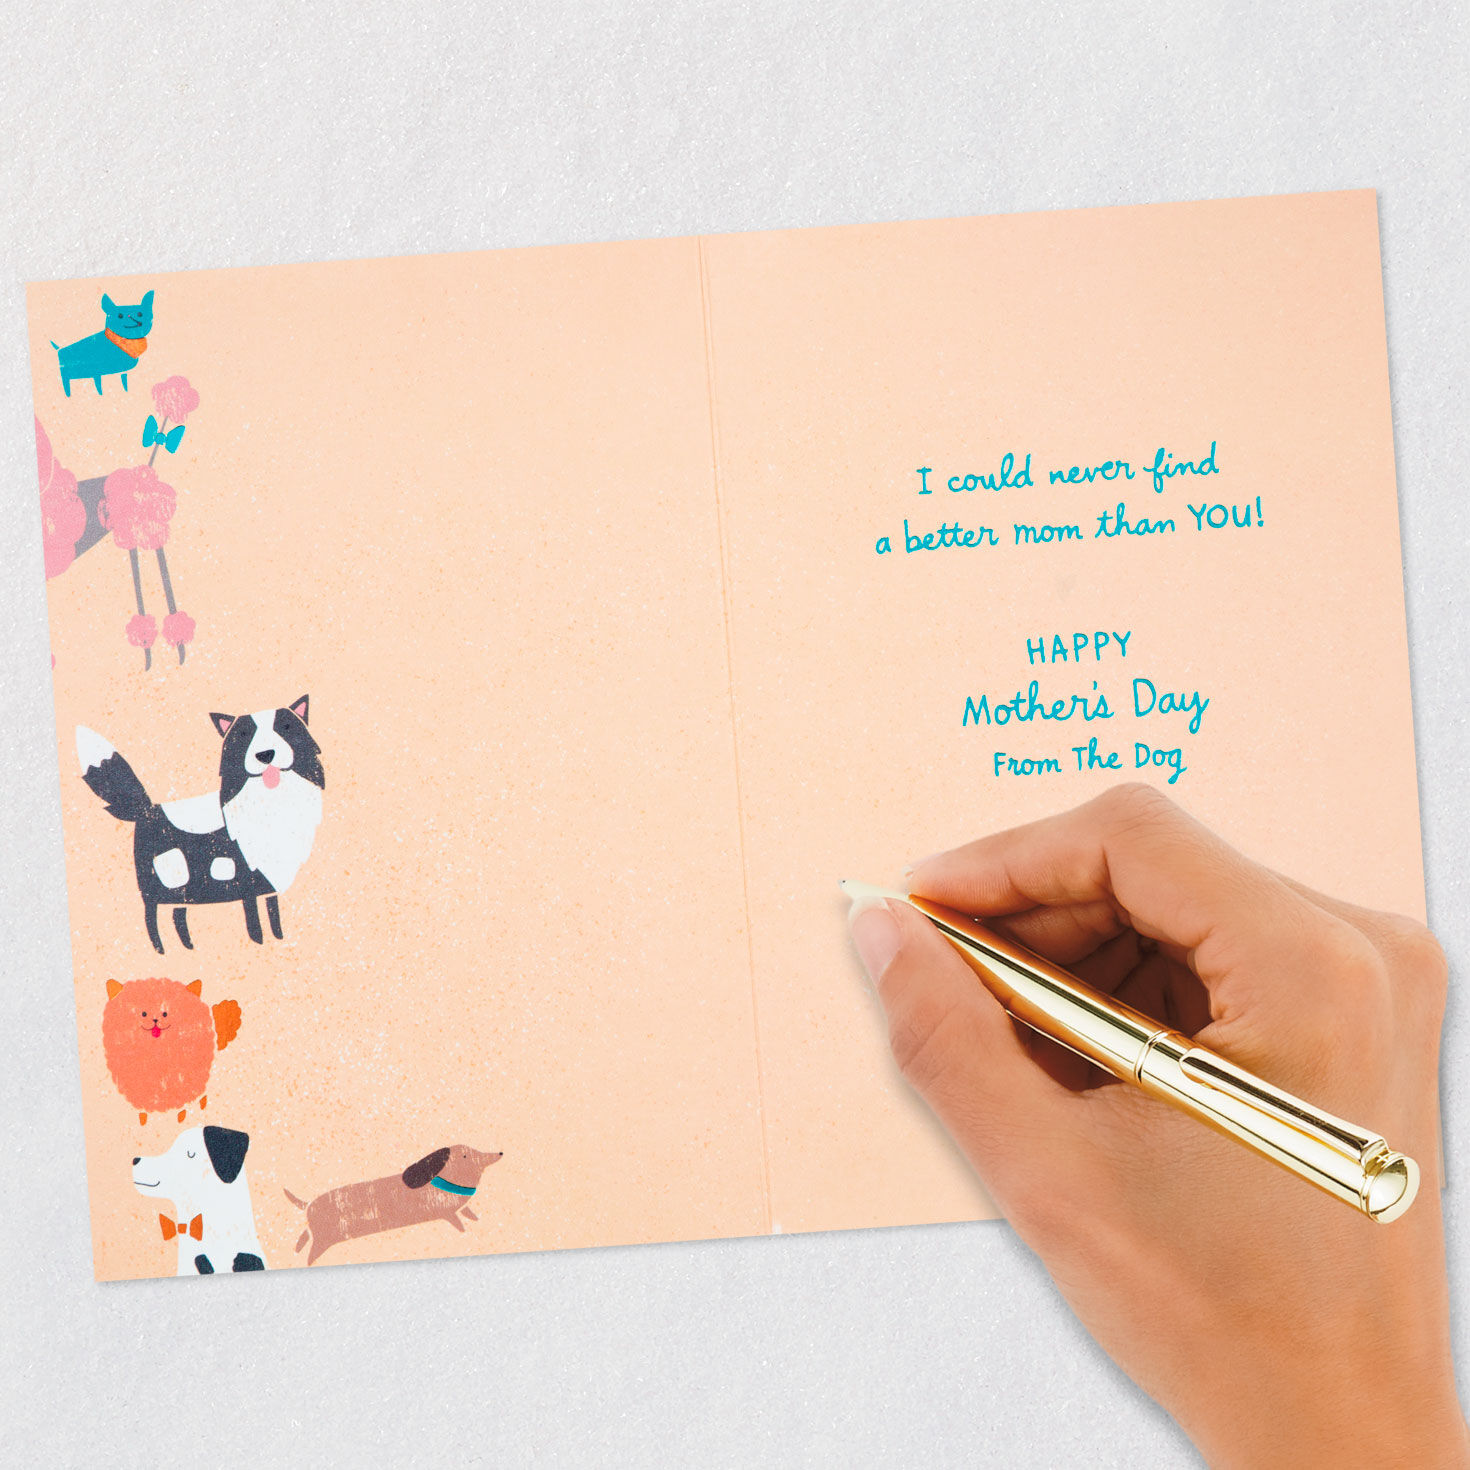 I could never find
a better mom than YOU!
HAPPY
Mother's Day
From The Dog